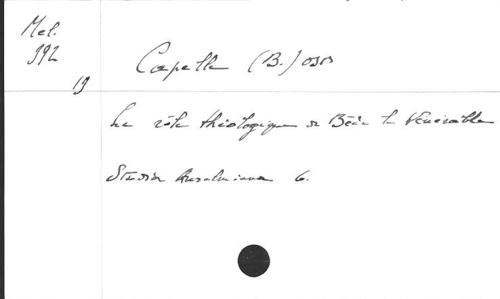 Mel.
392
19
Capelle (B.) OSB
Le rôle théologique de Bède le Vénérable
Studia Anselmiana 6.